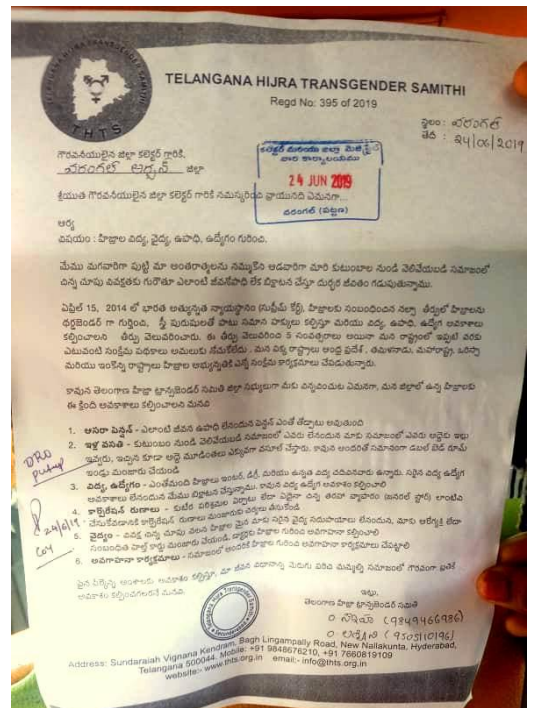 TELANGANA HIJRA TRANSGENDER SAMITHI
THTS
Regd No: 395 of 2019
స్థలం : వరంగల్
తేది : 24/06/2019
గౌరవనీయులైన జిల్లా కలెక్టర్ గారికి,
వరంగల్ అర్బన్ జిల్లా
24 JUN 2019
వరంగల్ (పట్టణ)
శ్రీయుత గౌరవనీయులైన జిల్లా కలెక్టర్ గారికి నమస్కరించి వ్రాయునది ఏమనగా...
ఆర్య
విషయం : హిజ్రాల విద్య, వైద్య, ఉపాధి, ఉద్యోగం గురించి.
మేము మగవారిగా పుట్టి మా అంతరాత్మలను నమ్ముకొని ఆడవారిగా మారి కుటుంబాల నుండి వెలివేయబడి సమాజంలో
చిన్న చూపు వివక్షతకు గురౌతూ ఎలాంటి జీవనోపాధి లేక బిక్షాటన చేస్తూ దుర్భర జీవితం గడుపుతున్నాము.
ఏప్రిల్ 15, 2014 లో భారత అత్యున్నత న్యాయస్థానం (సుప్రీమ్ కోర్ట్), హిజ్రాలకు సంబంధించిన నల్సా తీర్పులో హిజ్రాలను
థర్డ్‌జెండర్ గా గుర్తించి, స్త్రీ పురుషులతో పాటు సమాన హక్కులు కల్పిస్తూ మరియు విద్య, ఉపాధి, ఉద్యోగ అవకాశాలు
కల్పించాలని తీర్పు వెలువరించారు. ఈ తీర్పు వెలువరించి 5 సంవత్సరాలు అయినా మన రాష్ట్రంలో ఇప్పటి వరకు
ఎటువంటి సంక్షేమ పథకాలు అమలుకు నోచుకోలేదు. మన పక్క రాష్ట్రాలు ఆంధ్ర ప్రదేశ్, తమిళనాడు, మహారాష్ట్ర, ఒరిస్సా
మరియు ఇంకొన్ని రాష్ట్రాలు హిజ్రాల అభ్యున్నతికి ఎన్నో సంక్షేమ కార్యక్రమాలు చేపడుతున్నారు.
కావున తెలంగాణ హిజ్రా ట్రాన్స్‌జెండర్ సమితి జిల్లా సభ్యులుగా మీకు విన్నవించుట ఏమనగా, మన జిల్లాలో ఉన్న హిజ్రాలకు
ఈ క్రింది అవకాశాలు కల్పించాలని మనవి
1. ఆసరా పెన్షన్ - ఎలాంటి జీవన ఉపాధి లేనందున పెన్షన్ ఎంతో తోడ్పాటు అవుతుంది
2. ఇళ్ల వసతి - కుటుంబం నుండి వెలివేయబడి సమాజంలో ఎవరు లేనందున మాకు సమాజంలో ఎవరు అద్దెకు ఇళ్లు
ఇవ్వరు, ఇచ్చిన కూడా అద్దె మూడింతలు ఎక్కువగా వసూల్ చేస్తారు. కావున అందరితో సమానంగా డబుల్ బెడ్ రూమ్
ఇండ్లు మంజూరు చేయండి
3. విద్య, ఉద్యోగం - ఎంతోమంది హిజ్రాలు ఇంటర్, డిగ్రీ, మరియు ఉన్నత విద్య చదివినవారు ఉన్నారు. సరైన విద్య ఉద్యోగ
అవకాశాలు లేనందున మేము బిక్షాటన చేస్తున్నాము. కావున విద్య ఉద్యోగ అవకాశం కల్పించాలి
4. కార్పొరేషన్ రుణాలు - కుటీర పరిశ్రమల ఏర్పాటు లేదా ఏదైనా చిన్న తరహా వ్యాపారం (జనరల్ స్టోర్) లాంటివి
చేసుకోవడానికి కార్పొరేషన్ రుణాలు మంజూరుకు చర్యలు తీసుకోండి
5. వైద్యం - వివక్ష చిన్న చూపు వలన హిజ్రాల మైన మాకు సరైన వైద్య సదుపాయాలు లేనందున, మాకు ఆరోగ్యశ్రీ లేదా
సంబంధిత హెల్త్ కార్డు మంజూరు చేయండి, డాక్టర్లకు హిజ్రాల గురించి అవగాహన కల్పించాలి
6. అవగాహనా కార్యక్రమాలు - సమాజంలో అందరికీ హిజ్రాల గురించి అవగాహనా కార్యక్రమాలు చేపట్టాలి
పైన పేర్కొన్న అంశాలకు అవకాశం కల్పిస్తూ, మా జీవన విధానాన్ని మెరుగు పరిచి మమ్మల్ని సమాజంలో గౌరవంగా బ్రతికే
అవకాశం కల్పించగలరని మనవి.
DRO
24/6/19
ఇట్లు,
తెలంగాణ హిజ్రా ట్రాన్స్‌జెండర్ సమితి
(9849466986)
(9505110196)
Address: Sundaraiah Vignana Kendram, Bagh Lingampally Road, New Nallakunta, Hyderabad,
Telangana 500044. Mobile: +91 9848676210, +91 7660819109
website:- www.thts.org.in email:- info@thts.org.in